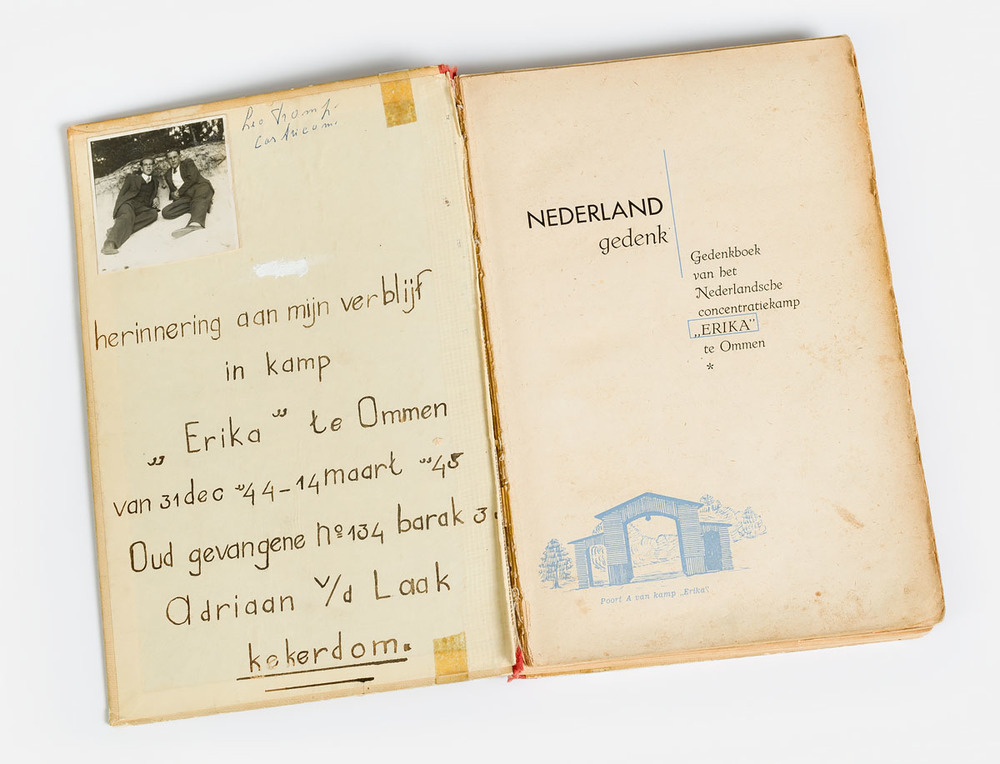 Leo Tromp.
Castricum.
herinnering aan mijn verblijf
in kamp
„Erika” te Ommen
van 31 dec "44-14 maart "45
Oud gevangene nº 134 barak 3.
Adriaan v/d Laak
kekerdom.
NEDERLAND
gedenk
Gedenkboek
van het
Nederlandsche
concentratiekamp
„ERIKA”
te Ommen
*
Poort A van kamp „Erika”